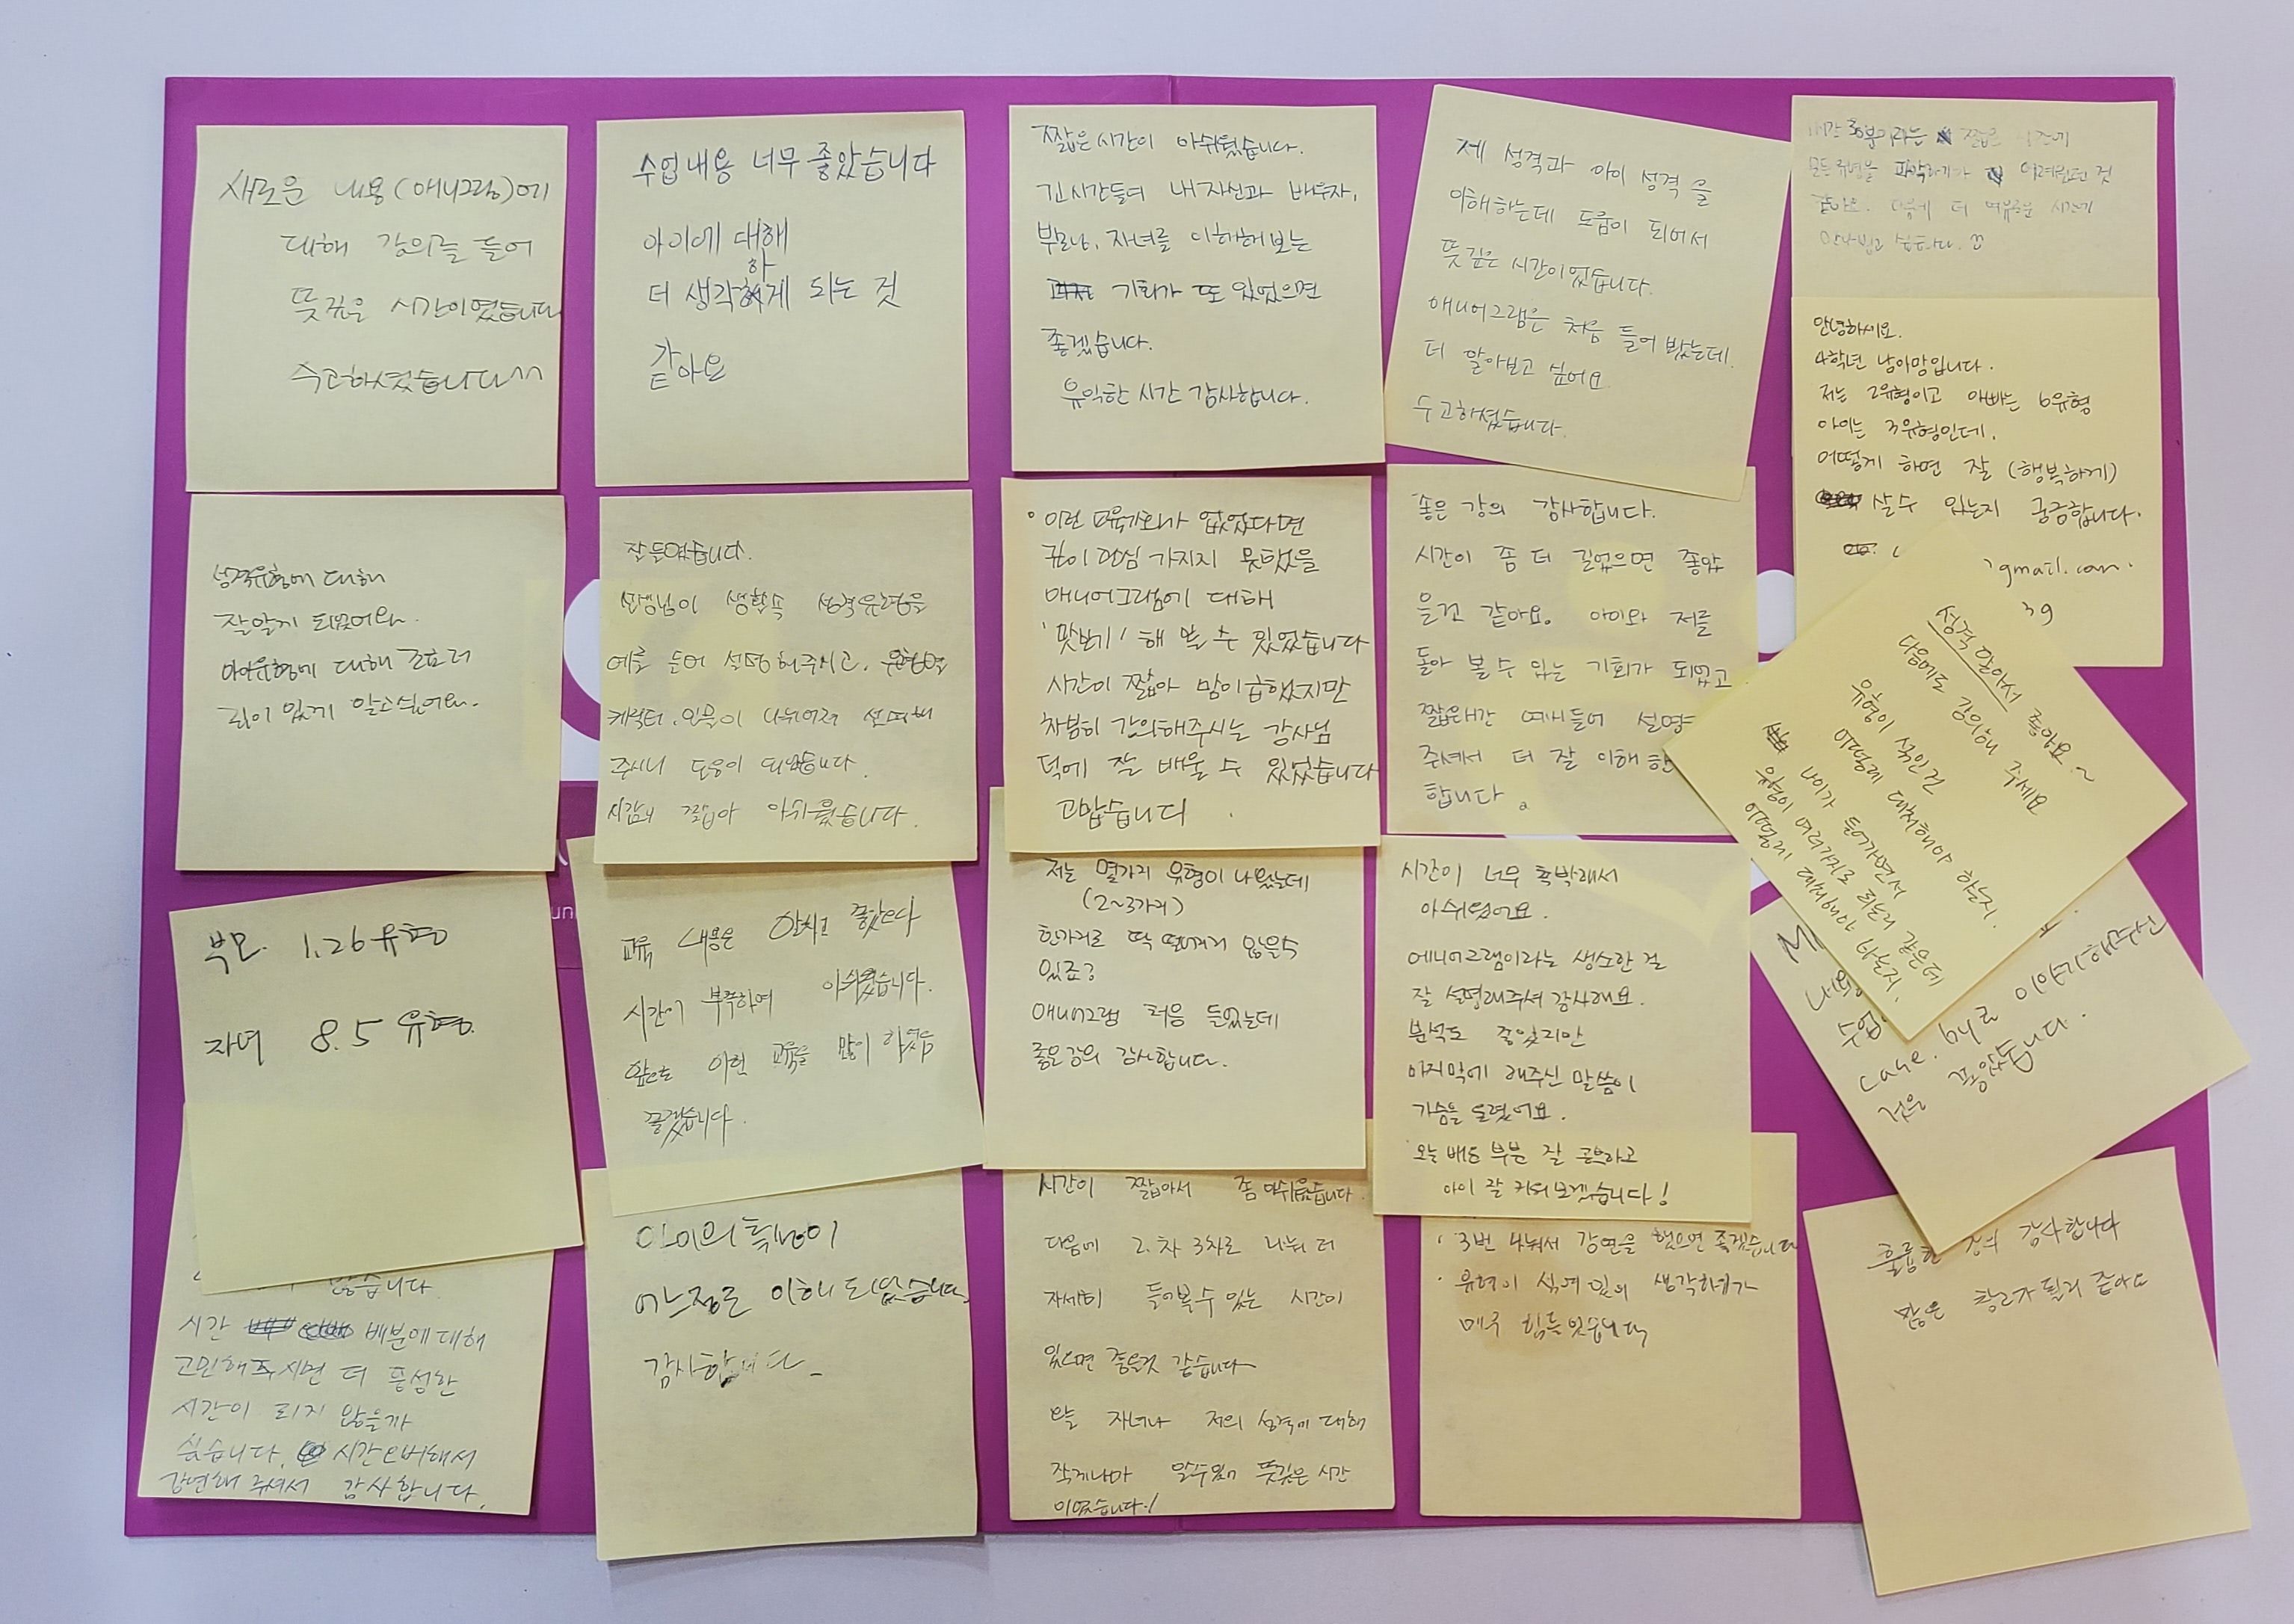 새로운 내용(애니그램)에
대해 강의를 들어
뜻깊은 시간이였습니다
수고하셨습니다^^
수업내용 너무 좋았습니다
아이에 대해
더 생각하게 되는 것
같아요
짧은 시간이 아쉬웠습니다.
긴 시간들여 내자신과 배우자,
부모님, 자녀를 이해해보는
기회가 또 있었으면
좋겠습니다.
유익한 시간 감사합니다.
제 성격과 아이 성격을
이해하는데 도움이 되어서
뜻깊은 시간이었습니다.
애니어그램은 처음 들어 봤는데
더 알아보고 싶어요
수고하셨습니다.
짧은 시간에
모든유형을 파악하기가 어려웠던 것
같아요. 더 여유로운 시간에
만나뵙고 싶습니다.
안녕하세요.
4학년 남아맘입니다.
저는 2유형이고 아빠는 6유형
아이는 3유형인데,
어떻게 하면 잘 (행복하게)
살수 있는지 궁금합니다.
gmail.com.
39
성격유형에 대해
잘알게 되었어요.
아이유형에 대해 조금더
깊이 있게 알고싶어요.
잘 들었습니다.
선생님이 생활속 성격유형을
예를 들어 설명해주시고, 유형별
캐릭터, 인물이 나뉘어져 설명해
주시니 도움이 되었습니다.
시간이 짧아 아쉬웠습니다.
° 이런 교육기회가 없었다면
깊이 관심 가지지 못했을
애니어그램에 대해
'맛보기' 해 볼 수 있었습니다
시간이 짧아 맘이급했지만
차분히 강의해주시는 강사님
덕에 잘 배울 수 있었습니다
고맙습니다.
좋은 강의 감사합니다.
시간이 좀 더 길었으면 좋았
을것 같아요. 아이와 저를
돌아 볼 수 있는 기회가 되었고
짧은시간 예시들어 설명
주셔서 더 잘 이해 한
합니다.
성격 알아서 좋아요~
다음에도 강의해 주세요
유형이 섞인건
어떻게 대처해야 하는지.
나이가 들어가면서
유형이 여러가지로 되는거 같은데
어떻게 대처해야 하는지.
부모 1.26유형
자녀 8.5 유형.
교육 내용은 알차고 좋았으나
시간이 부족하여 아쉬웠습니다.
앞으로 이런 교육을 많이 하셨음
좋겠습니다.
저는 몇가지 유형이 나왔는데
(2~3가지)
한가지로 딱 떨어지지 않을수
있죠?
애니어그램 처음 들었는데
좋은강의 감사합니다.
시간이 너무 촉박해서
아쉬웠어요.
에니어그램이라는 생소한 걸
잘 설명해주셔 감사해요.
분석도 좋았지만
마지막에 해주신 말씀이
가슴을 울렸어요.
오늘 배운 부분 잘 공부하고
아이 잘 키워보겠습니다!
수업
case. by로 이야기해주신
것은 좋았습니다.
않습니다.
시간 배분에 대해
고민해주시면 더 풍성한
시간이 되지 않을까
싶습니다. 시간오버해서
강연해 주셔서 감사합니다.
아이의 특성이
어느정도 이해 되었습니다.
감사합니다.
시간이 짧아서 좀 아쉬웠습니다.
다음에 2차 3차로 나눠 더
자세히 들어볼 수 있는 시간이
있으면 좋을것 같습니다
오늘 자녀나 저의 성격에 대해
작게나마 알수있어 뜻깊은 시간
이였습니다!
· 3번 나눠서 강연을 했으면 좋겠습니다
· 유형이 섞여 있어 생각하기가
매우 힘들었습니다
훌륭한 강의 감사합니다
많은 참고가 될거 같아요